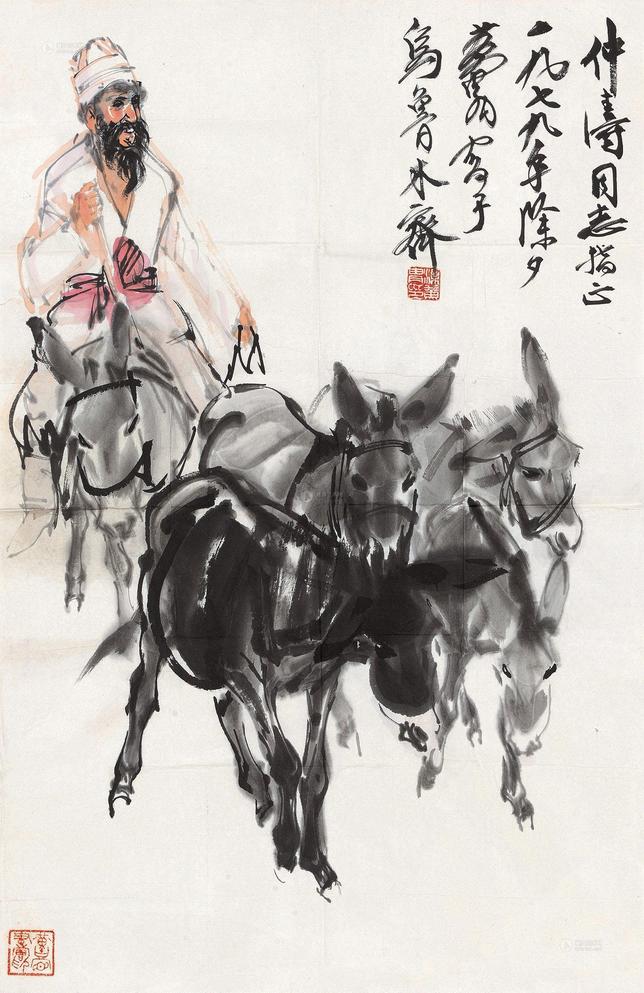 仲濤同志指正
一九七九年除夕
黄胄写于
烏魯木齊